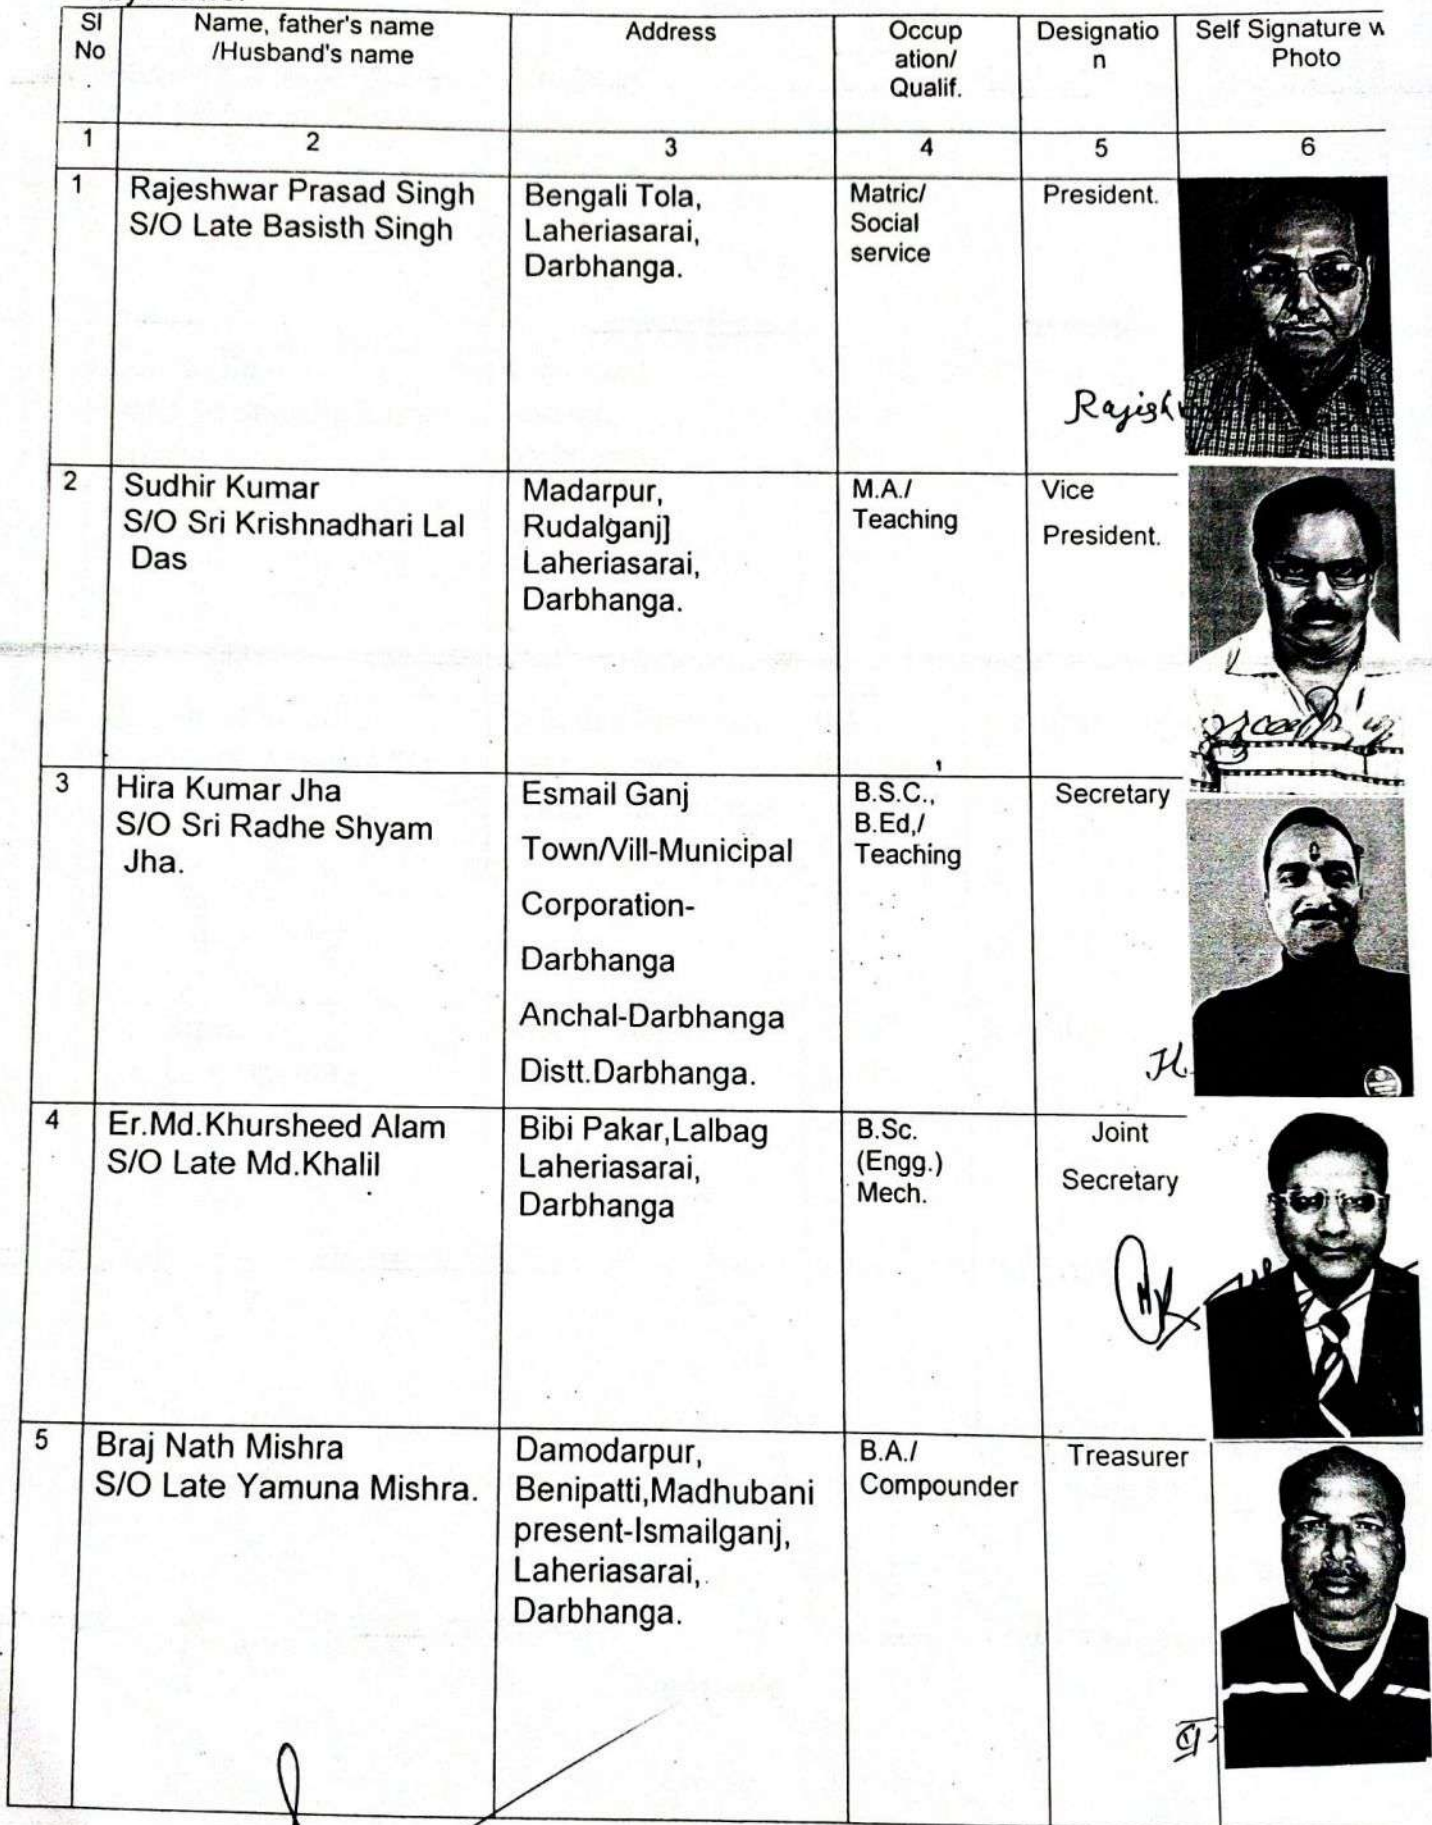 Sl No
Name, father's name
/Husband's name
Address
Occup
ation/
Qualif.
Designatio
n
Self Signature w
Photo
1 2 3 4 5 6
1
Rajeshwar Prasad Singh
S/O Late Basisth Singh
Bengali Tola,
Laheriasarai,
Darbhanga.
Matric/
Social
service
President.
2
Sudhir Kumar
S/O Sri Krishnadhari Lal
Das
Madarpur,
Rudalganj]
Laheriasarai,
Darbhanga.
M.A./
Teaching
Vice
President.
3
Hira Kumar Jha
S/O Sri Radhe Shyam
Jha.
Esmail Ganj
Town/Vill-Municipal
Corporation-
Darbhanga
Anchal-Darbhanga
Distt.Darbhanga.
B.S.C.,
B.Ed,/
Teaching
Secretary
4
Er.Md.Khursheed Alam
S/O Late Md.Khalil
Bibi Pakar,Lalbag
Laheriasarai,
Darbhanga
B.Sc.
(Engg.)
Mech.
Joint
Secretary
5
Braj Nath Mishra
S/O Late Yamuna Mishra.
Damodarpur,
Benipatti,Madhubani
present-Ismailganj,
Laheriasarai,
Darbhanga.
B.A./
Compounder
Treasurer